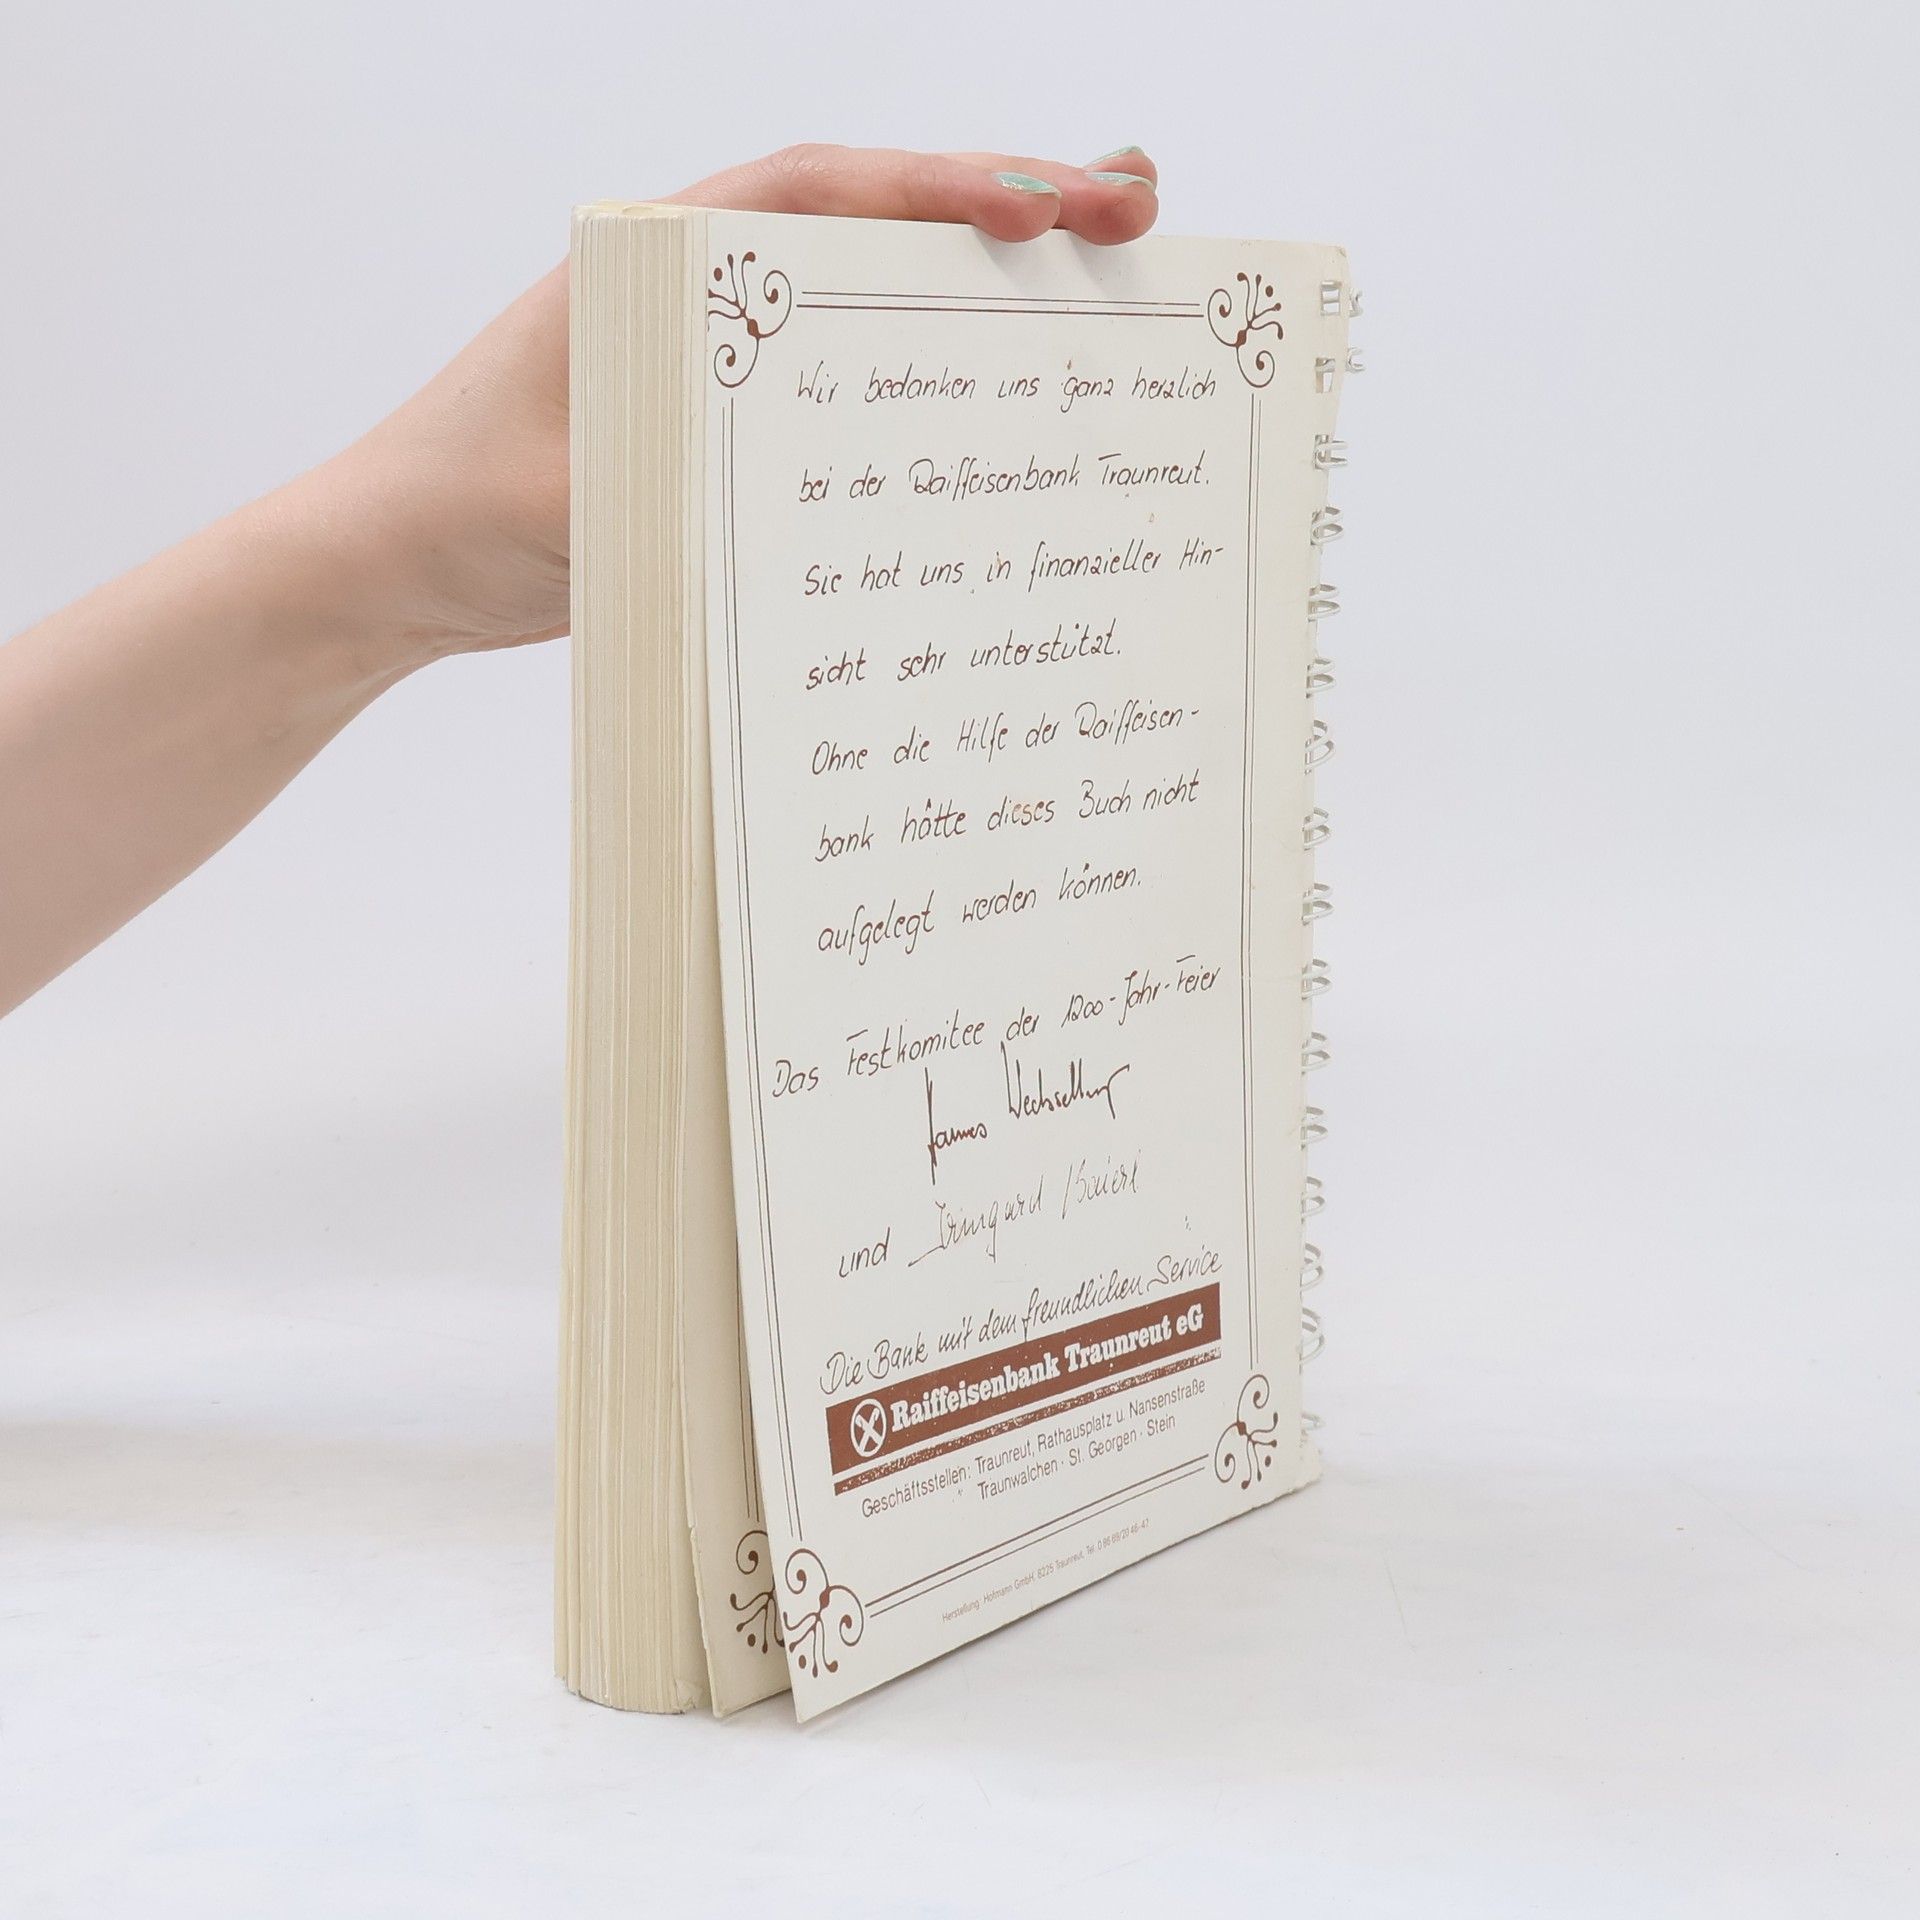 Wir bedanken uns ganz herzlich
bei der Raiffeisenbank Traunreut.
Sie hat uns in finanzieller Hin-
sicht sehr unterstützt.
Ohne die Hilfe der Raiffeisen-
bank hätte dieses Buch nicht
aufgelegt werden können.
Das Festkomitee der 1200-Jahr-Feier
und Irmgard Baierl
Die Bank mit dem freundlichen Service
Raiffeisenbank Traunreut eG
Geschäftsstellen: Traunreut, Rathausplatz u. Nansenstraße
Traunwalchen · St. Georgen · Stein
Herstellung: Hofmann GmbH, 8225 Traunreut, Tel. 0 86 69/20 46-47